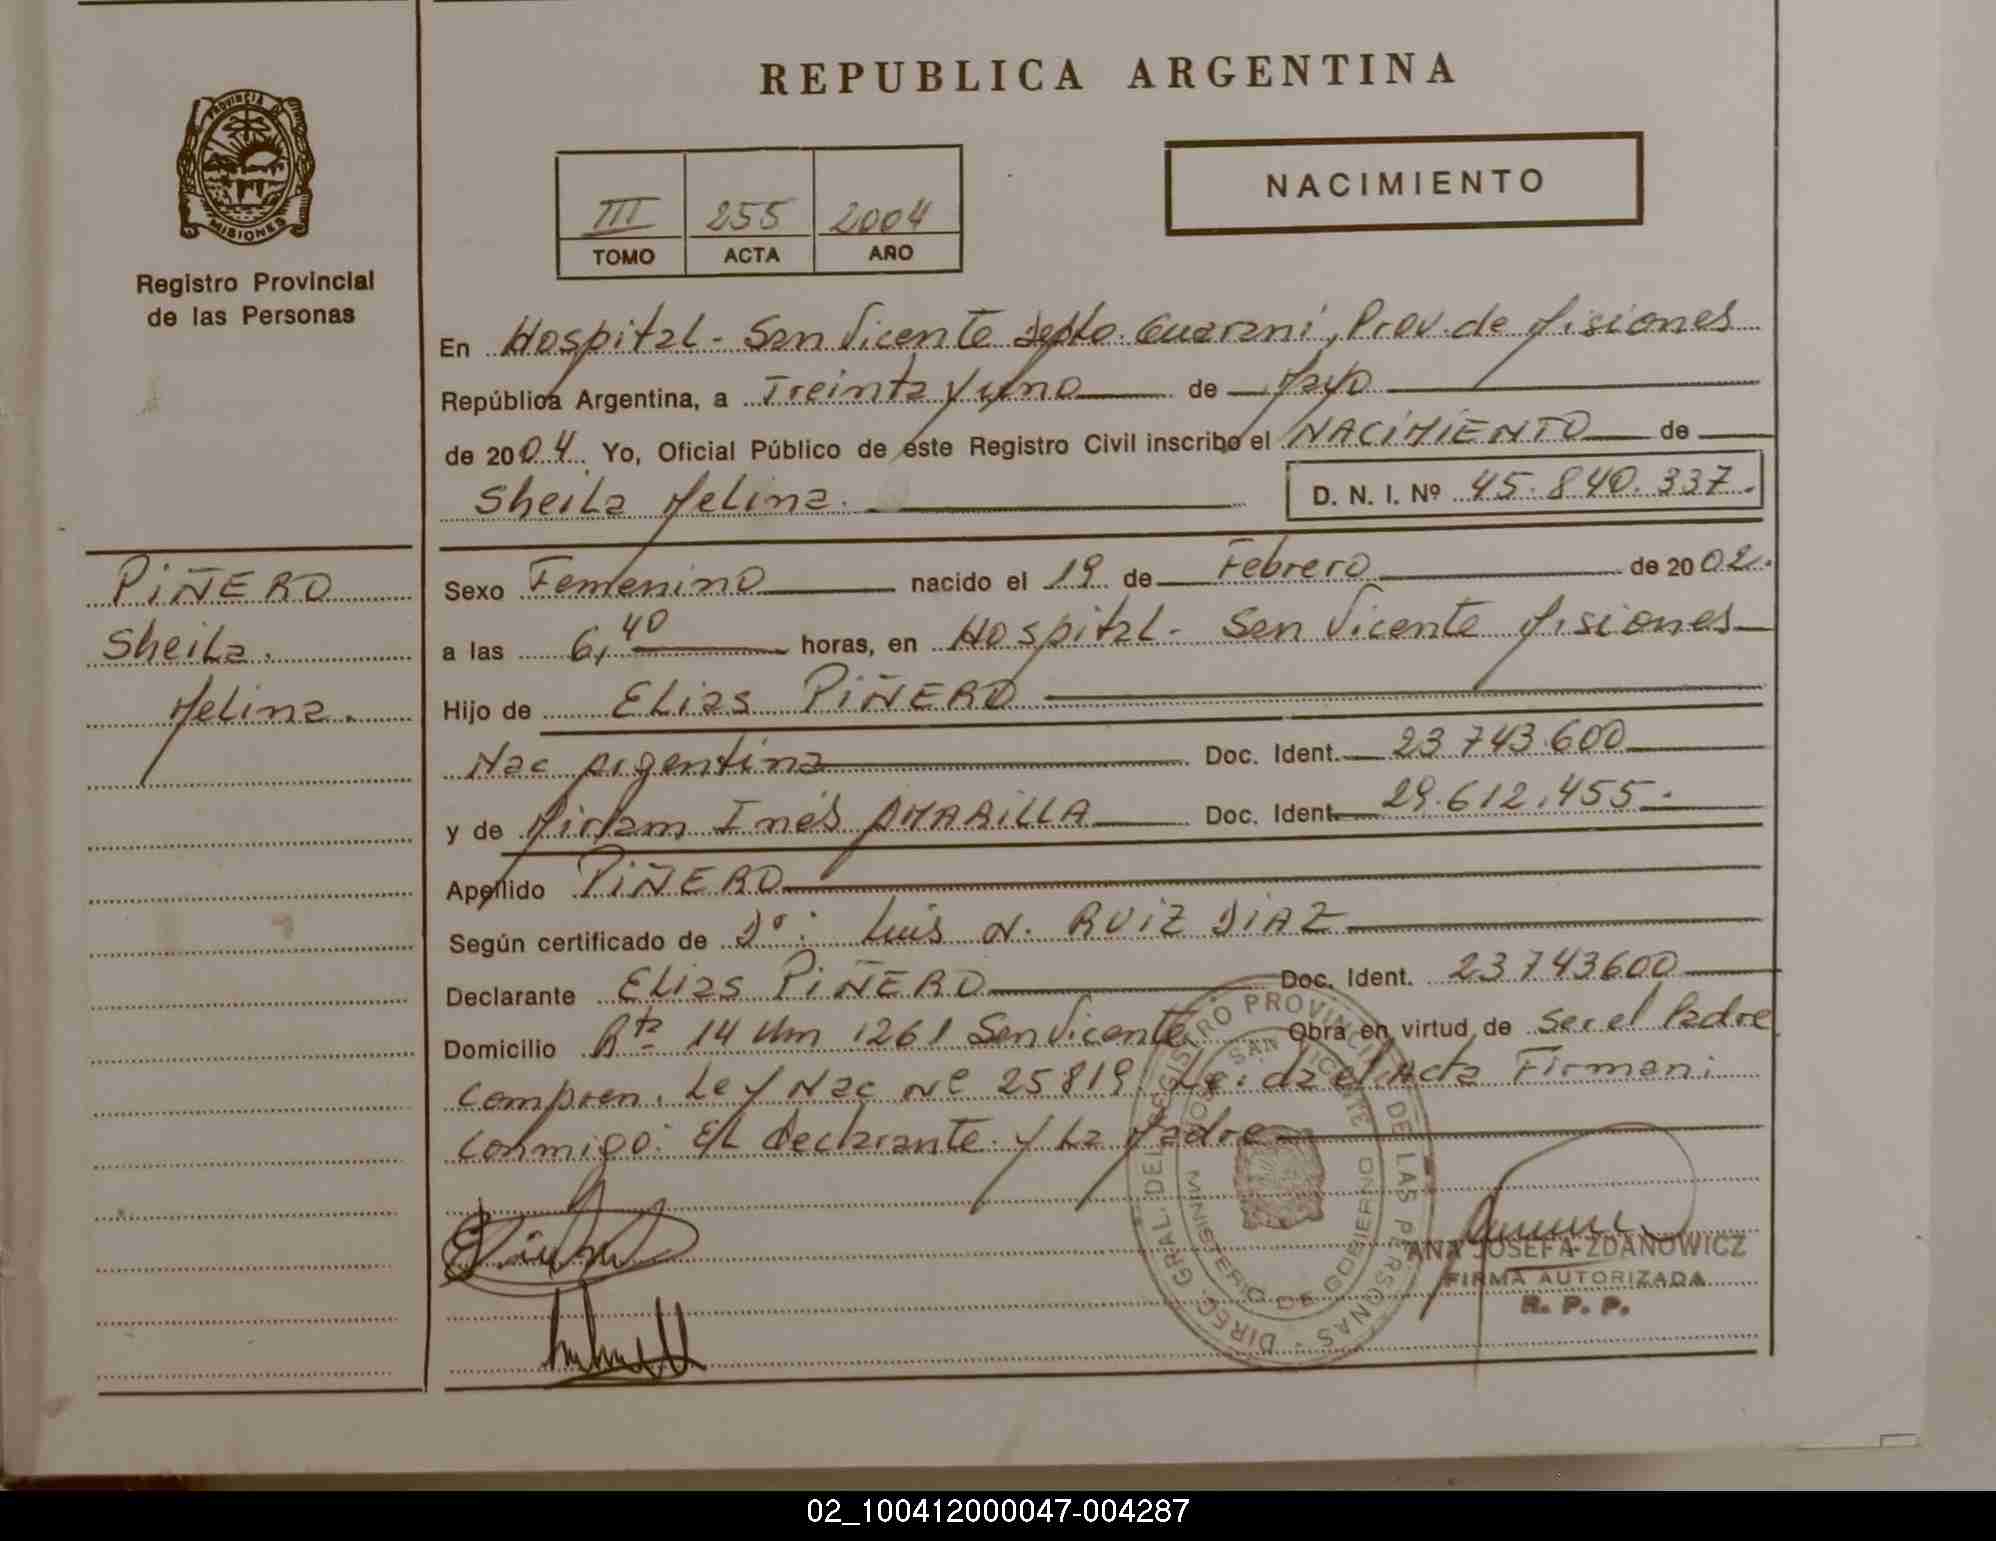 REPUBLICA ARGENTINA
PROVINCIA DE
MISIONES
Registro Provincial
de las Personas
III 255 2004
TOMO ACTA AÑO
NACIMIENTO
En Hospital - San Vicente Depto. Guaraní, Prov. de Misiones
República Argentina, a Treinta y uno de Mayo
de 2004. Yo, Oficial Público de este Registro Civil inscribo el NACIMIENTO de
Sheila Melina. D. N. I. Nº 45.840.337.
PIÑERO
Sheila.
Melina.
Sexo Femenino nacido el 19 de Febrero de 2002.
a las 6,40 horas, en Hospital - San Vicente Misiones
Hijo de Elias PIÑERO
Nac Argentina Doc. Ident. 23 743.600
y de Miriam Inés AMARILLA Doc. Ident. 29.612.455.
Apellido PIÑERO
Según certificado de Dº: Luis N. RUIZ DIAZ
Declarante Elias PIÑERO Doc. Ident. 23743600
Domicilio Rta 14 Km 1261 San Vicente Obra en virtud de Ser el Padre
compren. Ley Nac Nº 25819. Leida el Acta Firman:
conmigo: El declarante y La Madre
DIREC. GRAL. DEL REGISTRO PROVINCIAL DE LAS PERSONAS
SAN VICENTE
MINISTERIO DE GOBIERNO
ANA JOSEFA ZDANOWICZ
FIRMA AUTORIZADA
R. P. P.
02_100412000047-004287